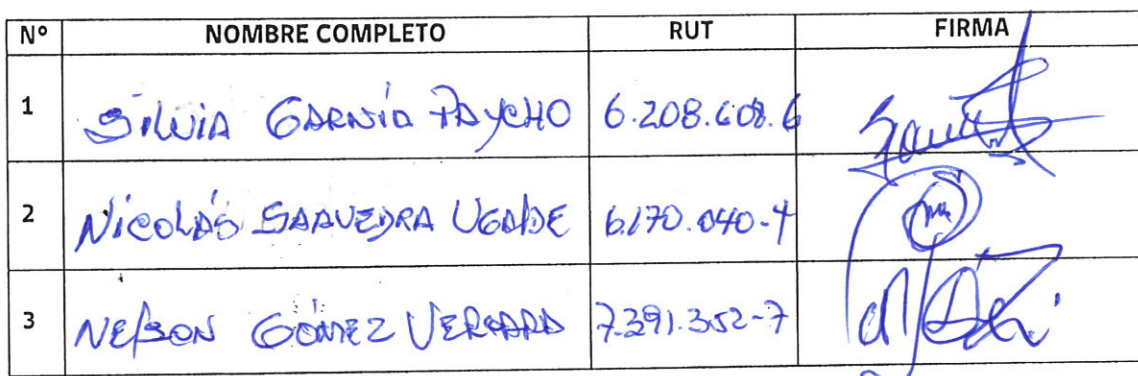 Nº NOMBRE COMPLETO RUT FIRMA
1 SILVIA GARNÍA PAYCHO 6.208.608.6
2 NICOLÁS SAAVEDRA UGALDE 6.170.040-4
3 NELSON GÓMEZ VERGARA 7.391.352-7